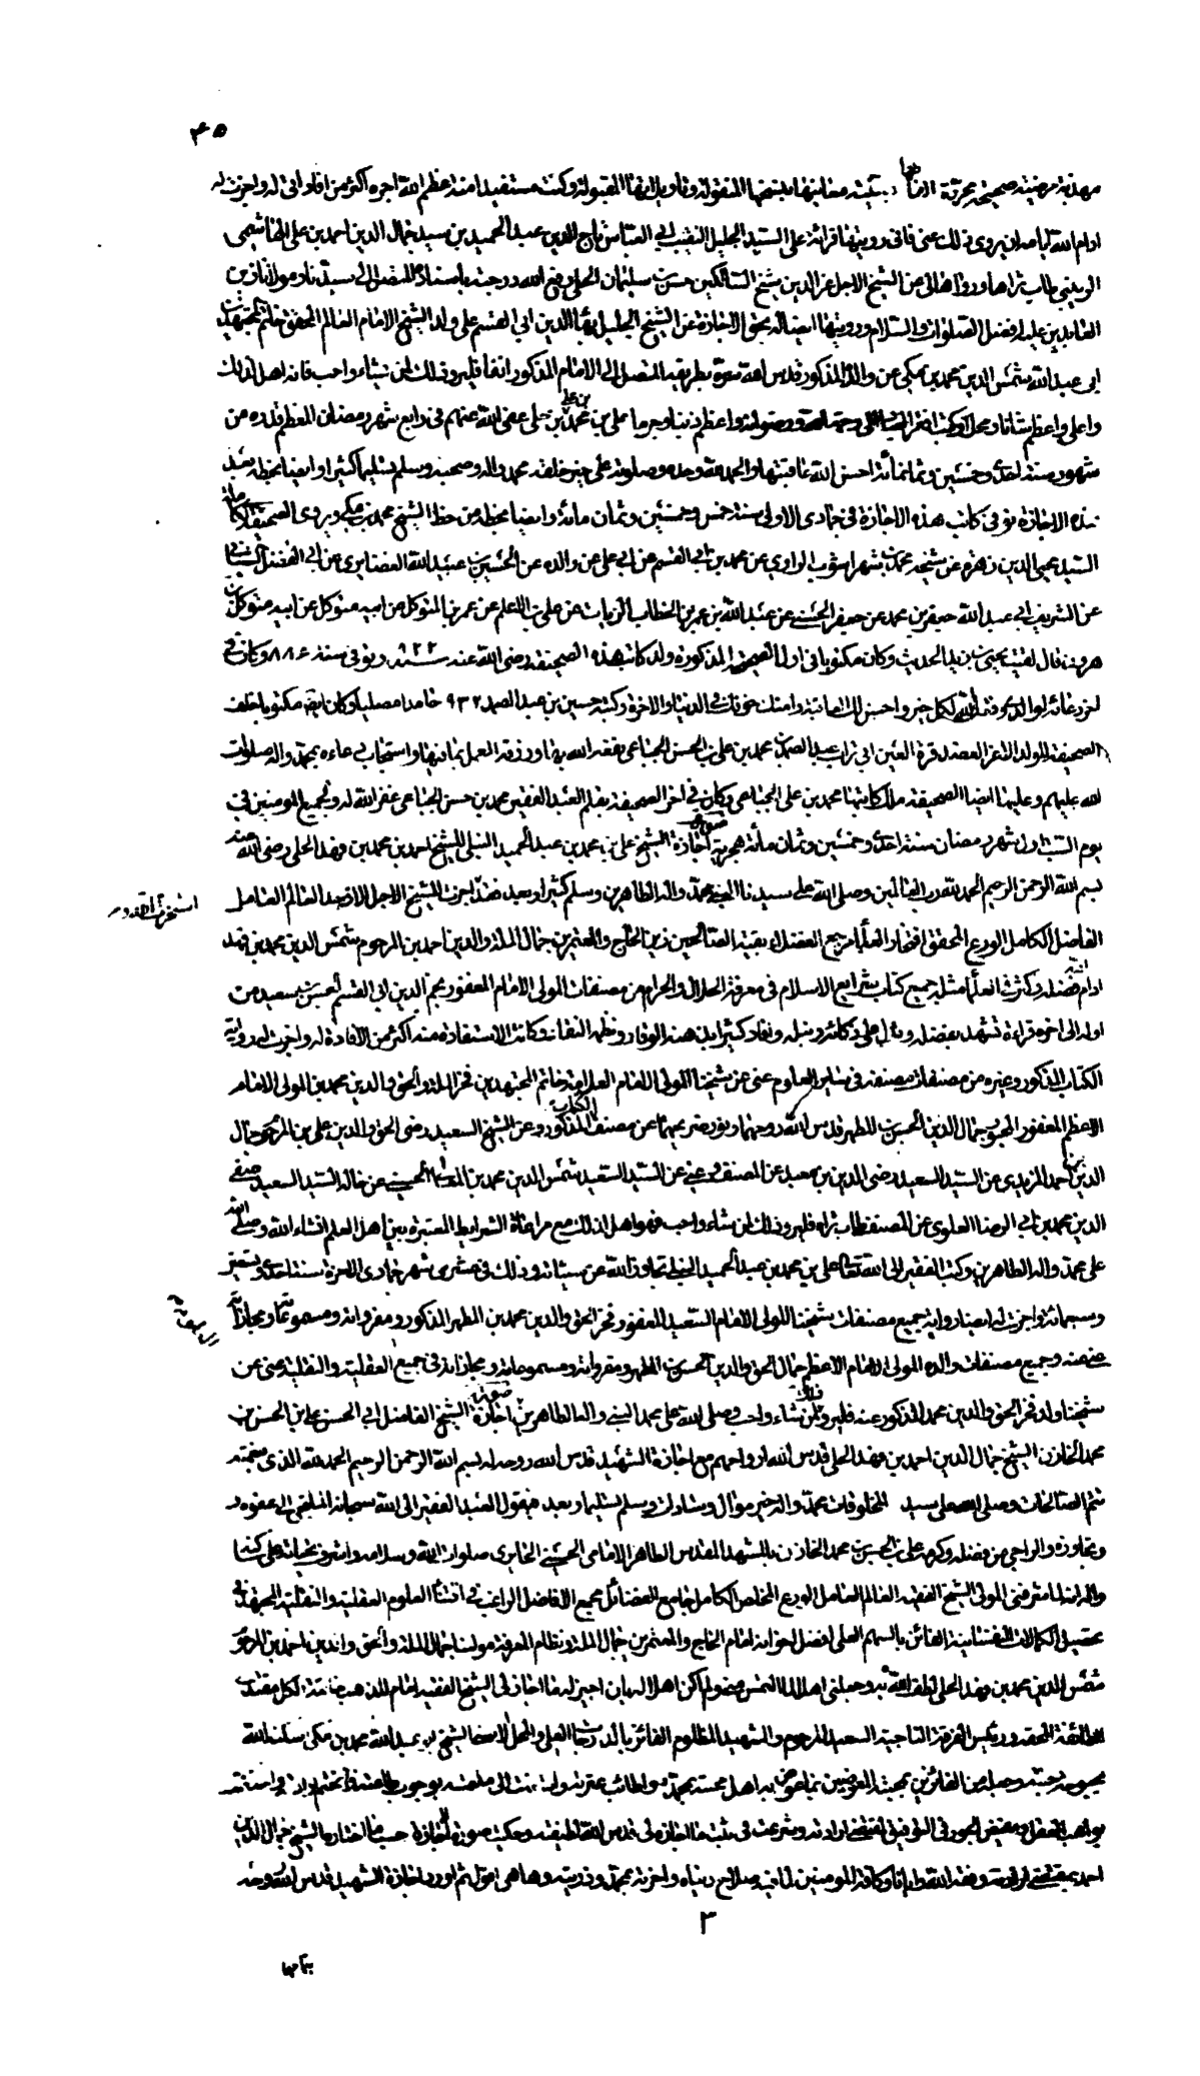 ٣٥
مهذبة مرضية صحيحة محررة الفاظها بينة معانيها بنسخها المنقولة وتاويلاتها المقبولة وكنت مستفيدا منه عظم الله اجره اكثر من افادتى له واجزت له
ادام الله ايامه ان يروى ذلك عنى فانى رويتها قراءة على السيد الجليل النقيب ابى العباس تاج الدين عبد الحميد بن سيد جمال الدين احمد بن على الهاشمى
الزينبى طاب ثراهما ورواها لى عن الشيخ الاجل عز الدين شيخ السالكين حسن بن سليمان الحلى رفع الله درجته باسناده المتصل الى سيدنا ومولانا زين
العابدين عليه افضل الصلوات والسلام ورويتها ايضا له بحق الاجازة عن الشيخ الجليل بهاء الدين ابى القسم على ولد الشيخ الامام العالم المحقق خاتم المجتهدين
ابى عبد الله شمس الدين محمد بن مكى عن والده المذكور قدس الله سره بطريقه المتصل الى الامام المذكور انفا فليرو ذلك لمن شاء واحب فانه اهل لذلك
واعلى واعظم شانا ومحلا وكتب افقر العباد الى رحمة الله ورضوانه واعظم ذنبا وجرما على بن محمد بن على بن حلى عفى الله عنهم فى رابع شهر رمضان المعظم قدره من
شهور سنة احدى وخمسين وثمانمائة احسن الله عاقبتها والحمد لله وحده وصلوته على خير خلقه محمد واله وصحبه وسلم تسليما كثيرا وايضا بخطه بعد
هذه الاجازة توفى كاتب هذه الاجازة فى جمادى الاولى سنة خمس وخمسين وثمان مائة وايضا بخطه من خط الشيخ محمد بن مكى ويروى الصحيفة الكاملة
السيد محيى الدين زهرة عن شيخه محمد بن شهراشوب الراوى عن محمد بن ابى القسم عن ابى على عن والده عن الحسين بن عبيد الله الغضايرى عن ابى الفضل الشيبانى
عن الشريف ابى عبد الله جعفر بن محمد عن جعفر الحسنى عن عبد الله بن عمر بن الخطاب الزيات عن على بن الاعلم عن عمر بن المتوكل عن ابيه متوكل عن ابيه متوكل بن
هرون قال لقيت يحيى بن زيد الحديث وكان مكتوبا فى اول الصحيفة المذكورة ولد كاتب هذه الصحيفة رضى الله عنه سنة ٨٢٢ وتوفى سنة ٨٨٦ وكان فى
اخر دعائه لوالدى وفقك الله لكل خير واحسن لك العاقبة وامنك خوفك فى الدنيا والاخرة وكتبه حسين بن عبد الصمد ٩٣٢ حامدا مصليا وكان ايضا مكتوبا خلف
الصحيفة للولد الاعز العضد قرة العين ابى تراب عبد الصمد بن محمد بن على بن الحسن الجباعى نفعه الله بها ورزقه العمل بما فيها واستجاب دعاءه بمحمد واله صلوات
الله عليهم وعليها ايضا الصحيفة ملك كاتبها محمد بن على الجباعى وكان فى اخر الصحيفة بقلم العبد الفقير محمد بن حسن الجباعى غفر الله له ولجميع المومنين فى
يوم السبت اول شهر رمضان سنة احدى وخمسين وثمان مائة هجرية صورة اجازة الشيخ على بن محمد بن عبد الحميد النيلى للشيخ احمد بن محمد بن فهد الحلى رضى الله عنه
بسم الله الرحمن الرحيم الحمد لله رب العالمين وصلى الله على سيدنا النبى محمد واله الطاهرين وسلم كثيرا وبعد فقد اجزت للشيخ الاجل الاوحد العالم العامل
الفاضل الكامل الورع المحقق افتخار العلما مرجع الفضلاء بقية الصالحين زين الحاج والمعتمرين جمال الملة والدين احمد بن المرحوم شمس الدين محمد بن فهد
ادام الله فضله وكثر فى العلما مثله جميع كتاب شرايع الاسلام فى معرفة الحلال والحرام من مصنفات المولى الامام المغفور نجم الدين ابى القسم جعفر بن سعيد من
اوله الى اخره قراءة تشهد بفضله وتدل على ذكائه ونبله وافاد كثيرا بذهنه الوقاد ونظره النقاد وكانت الاستفادة منه اكثر من الافادة له واجزت له رواية
الكتاب المذكور وغيره من مصنفات مصنفه فى ساير العلوم عنى عن شيخنا المولى الامام العلامة خاتم المجتهدين فخر الملة والحق والدين محمد بن المولى الامام
الاعظم المغفور المحبوب جمال الدين الحسن بن المطهر قدس الله روحهما ونور ضريحيهما عن مصنف الكتاب المذكور وعن الشيخ السعيد رضى الحق والدين على بن المرحوم جمال
الدين احمد المزيدى عن السيد السعيد رضى الدين بن معبد عن المصنف وعنى عن السيد السعيد شمس الدين محمد بن ابى المعالى الحسينى عن خاله السيد السعيد صفى
الدين محمد بن ابى الرضا العلوى عن المصنف طاب ثراه فليرو ذلك لمن شاء واحب فهو اهل لذلك مع مراعاة الشرايط المعتبرة بين اهل العلم انشاء الله وصلى الله
على محمد واله الطاهرين وكتب الفقير الى الله تعالى على بن محمد بن عبد الحميد النيلى تجاوز الله عن سيئاته وذلك فى عشرى شهر جمادى الاخرة سنة احدى وتسعين
وسبعمائة واجزت له ايضا رواية جميع مصنفات شيخنا المولى الامام السعيد المغفور فخر الحق والدين محمد بن المطهر المذكور ومقرواته ومسموعاته ومجازاته
عنى عنه وجميع مصنفات والده المولى الامام الاعظم جمال الحق والدين الحسن بن المطهر ومقرواته ومسموعاته ومجازاته فى جميع العقلية والنقلية عنى عن
شيخنا ولده فخر الحق والدين محمد المذكور عنه فليرو ذلك لمن شاء واحب وصلى الله على محمد النبى واله الطاهرين صورة اجازة الشيخ الفاضل ابى الحسن على بن الحسن بن
محمد الخازن الشيخ جمال الدين احمد بن فهد الحلى قدس الله ارواحهم مع اجازة الشهيد قدس الله روحه له بسم الله الرحمن الرحيم الحمد لله الذى بنعمته
تتم الصالحات وصلى الله على سيد المخلوقات محمد واله خير موال وسادات وسلم تسليما وبعد فيقول العبد الفقير الى الله سبحانه الملتجى الى عفوه
وتجاوزه والراجى من فضله وكرمه على بن الحسن بن محمد الخازن بالمشهد المقدس الطاهر الامامى الحسينى الحايرى صلوات الله وسلامه
والدين لما شرفنى المولى الشيخ الفقيه العالم العامل الورع المخلص الكامل جامع الفضائل مجمع الافاضل الراغب فى اقتناء العلوم العقلية والنقلية المجتهد فى
تحصيل الكمالات النفسانية الفائز بالسهم المعلى افضل اخوانه امام الحاج والمعتمرين جمال الملة ونظام الفرقة مولانا جمال الملة والحق والدين احمد بن المرحوم
شمس الدين محمد بن فهد الحلى لطف الله به وجعلنى اهلا لما التمس منى ولم اكن اهلا له بان اجيز له ما اجاز لى الشيخ الفقيه امام المذهب خاتمة الكل مقتدى
الطائفة المحقة ورئيس الفرقة الناجية السعيد المرحوم والشهيد المظلوم الفائز بالدرجات العلى والمحل الاسنى الشيخ ابو عبد الله محمد بن مكى اسكنه الله
بحبوحة جنته وجعله من الفائزين بمحبته المعوضين
بواهب العقل ومفيض الجود فى التوفيق لمقتضى ارادته وشرعت فى ثبت ما اجازه لى قدس الله لطيفه وحكيت صورة الاجازة حسبما اختاره الشيخ جمال الدين
احمد بمقتضى ارادته وفقه الله وايانا وكافة المومنين لما فيه صلاح دنياه واخرته بمحمد وذريته وها هى اقول ثم اورد اجازة الشهيد قدس الله روحه
٣
بتمامها